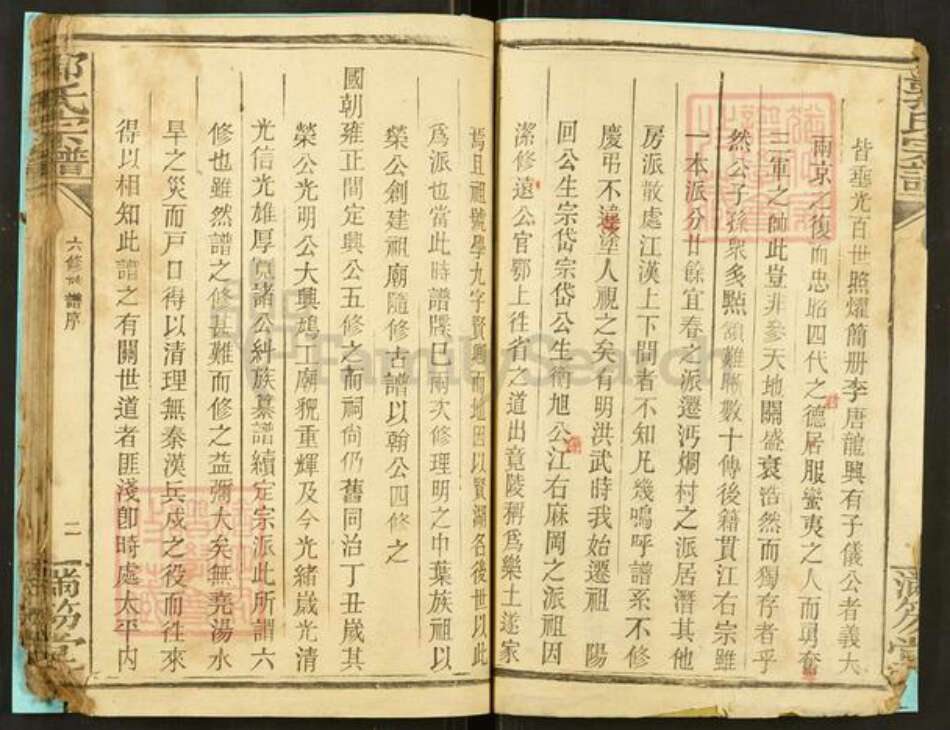 皆垂光百世照耀簡册李唐龍興有子儀公者義大
兩京之復而忠昭四代之德居服蠻夷之人而勇奮
三軍之帥此豈非參天地關盛衰浩然而獨存者乎
然公子孫眾多點額難勝數十傳後籍貫江右宗雖
一本派分廿餘宜春之派遷沔燗村之派居潛其他
房派散處江漢上下間者不知凡幾嗚呼譜系不修
慶弔不違塗人視之矣有明洪武時我始遷祖 陽
回公生宗岱宗岱公生衛旭公江右麻岡之派祖因
潔修遠公官鄂上往省之道出竟陵稱爲樂土遂家
焉且祖號學九字賢湖而地因以賢湖名後世以此
爲派也當此時譜牒已兩次修理明之中葉族祖以
榮公創建祖廟隨修古譜以翰公四修之
國朝雍正間定興公五修之而祠尙仍舊同治丁丑歲其
榮公光明公大興鳩工廟貌重輝及今光緒歲光清
光信光雄厚寬諸公糾族纂譜續定宗派此所謂六
修也雖然譜之修甚難而修之益彌大矣無堯湯水
旱之災而戶口得以清理無秦漢兵戍之役而往來
得以相知此譜之有關世道者匪淺卽時處太平内
郭氏宗譜
六修 譜序
二
滿笏堂
FamilySearch